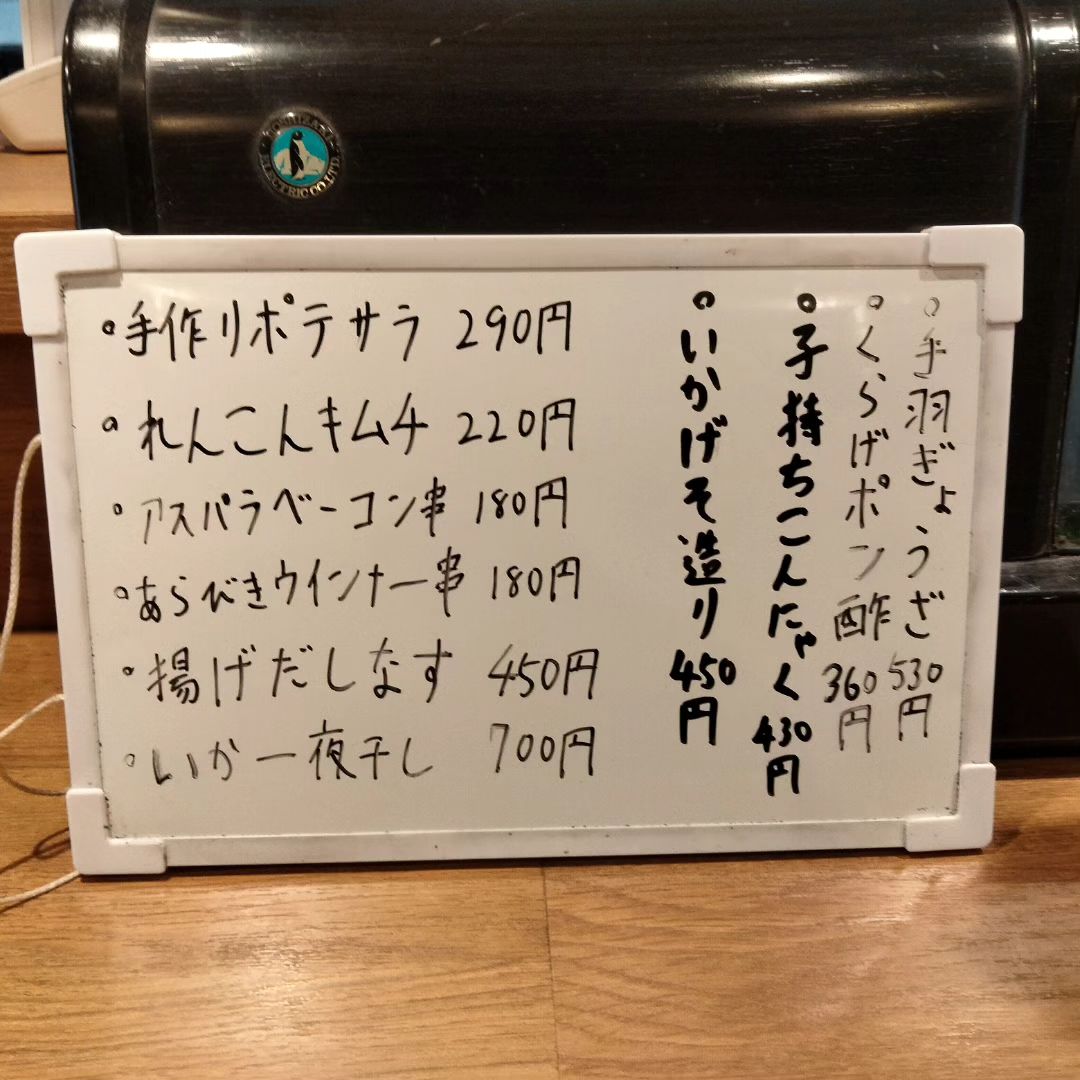 HOSHIZAKI ELECTRIC CO.,LTD.
。手作りポテサラ 290円
。れんこんキムチ 220円
。アスパラベーコン串 180円
。あらびきウインナー串 180円
。揚げだしなす 450円
。いか一夜干し 700円
。手羽ぎょうざ 530円
。くらげポン酢 360円
。子持ちこんにゃく 430円
。いかげそ造り 450円